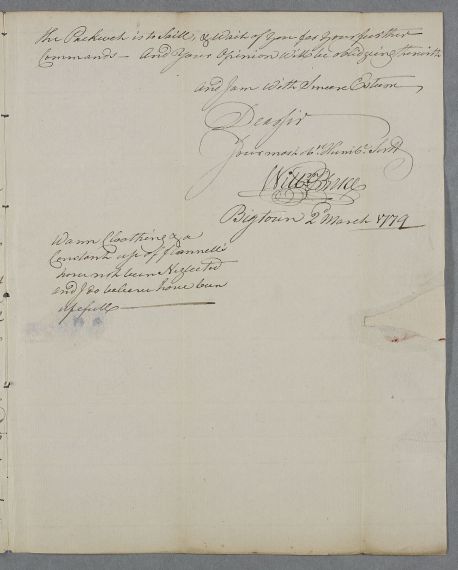 the Packuet is to Saill, & Wait of you for your further
Commands — And Your Opinion will be obidgeing
and I am With Sincere Esteem
Dear Sir
Your most obt. Humble. Servt
Willm
Bigtoun 2d March 1779
Warm Cloathing & a
Constant use of flannells
have not been Neglected
and I do beleave have been
usefull —